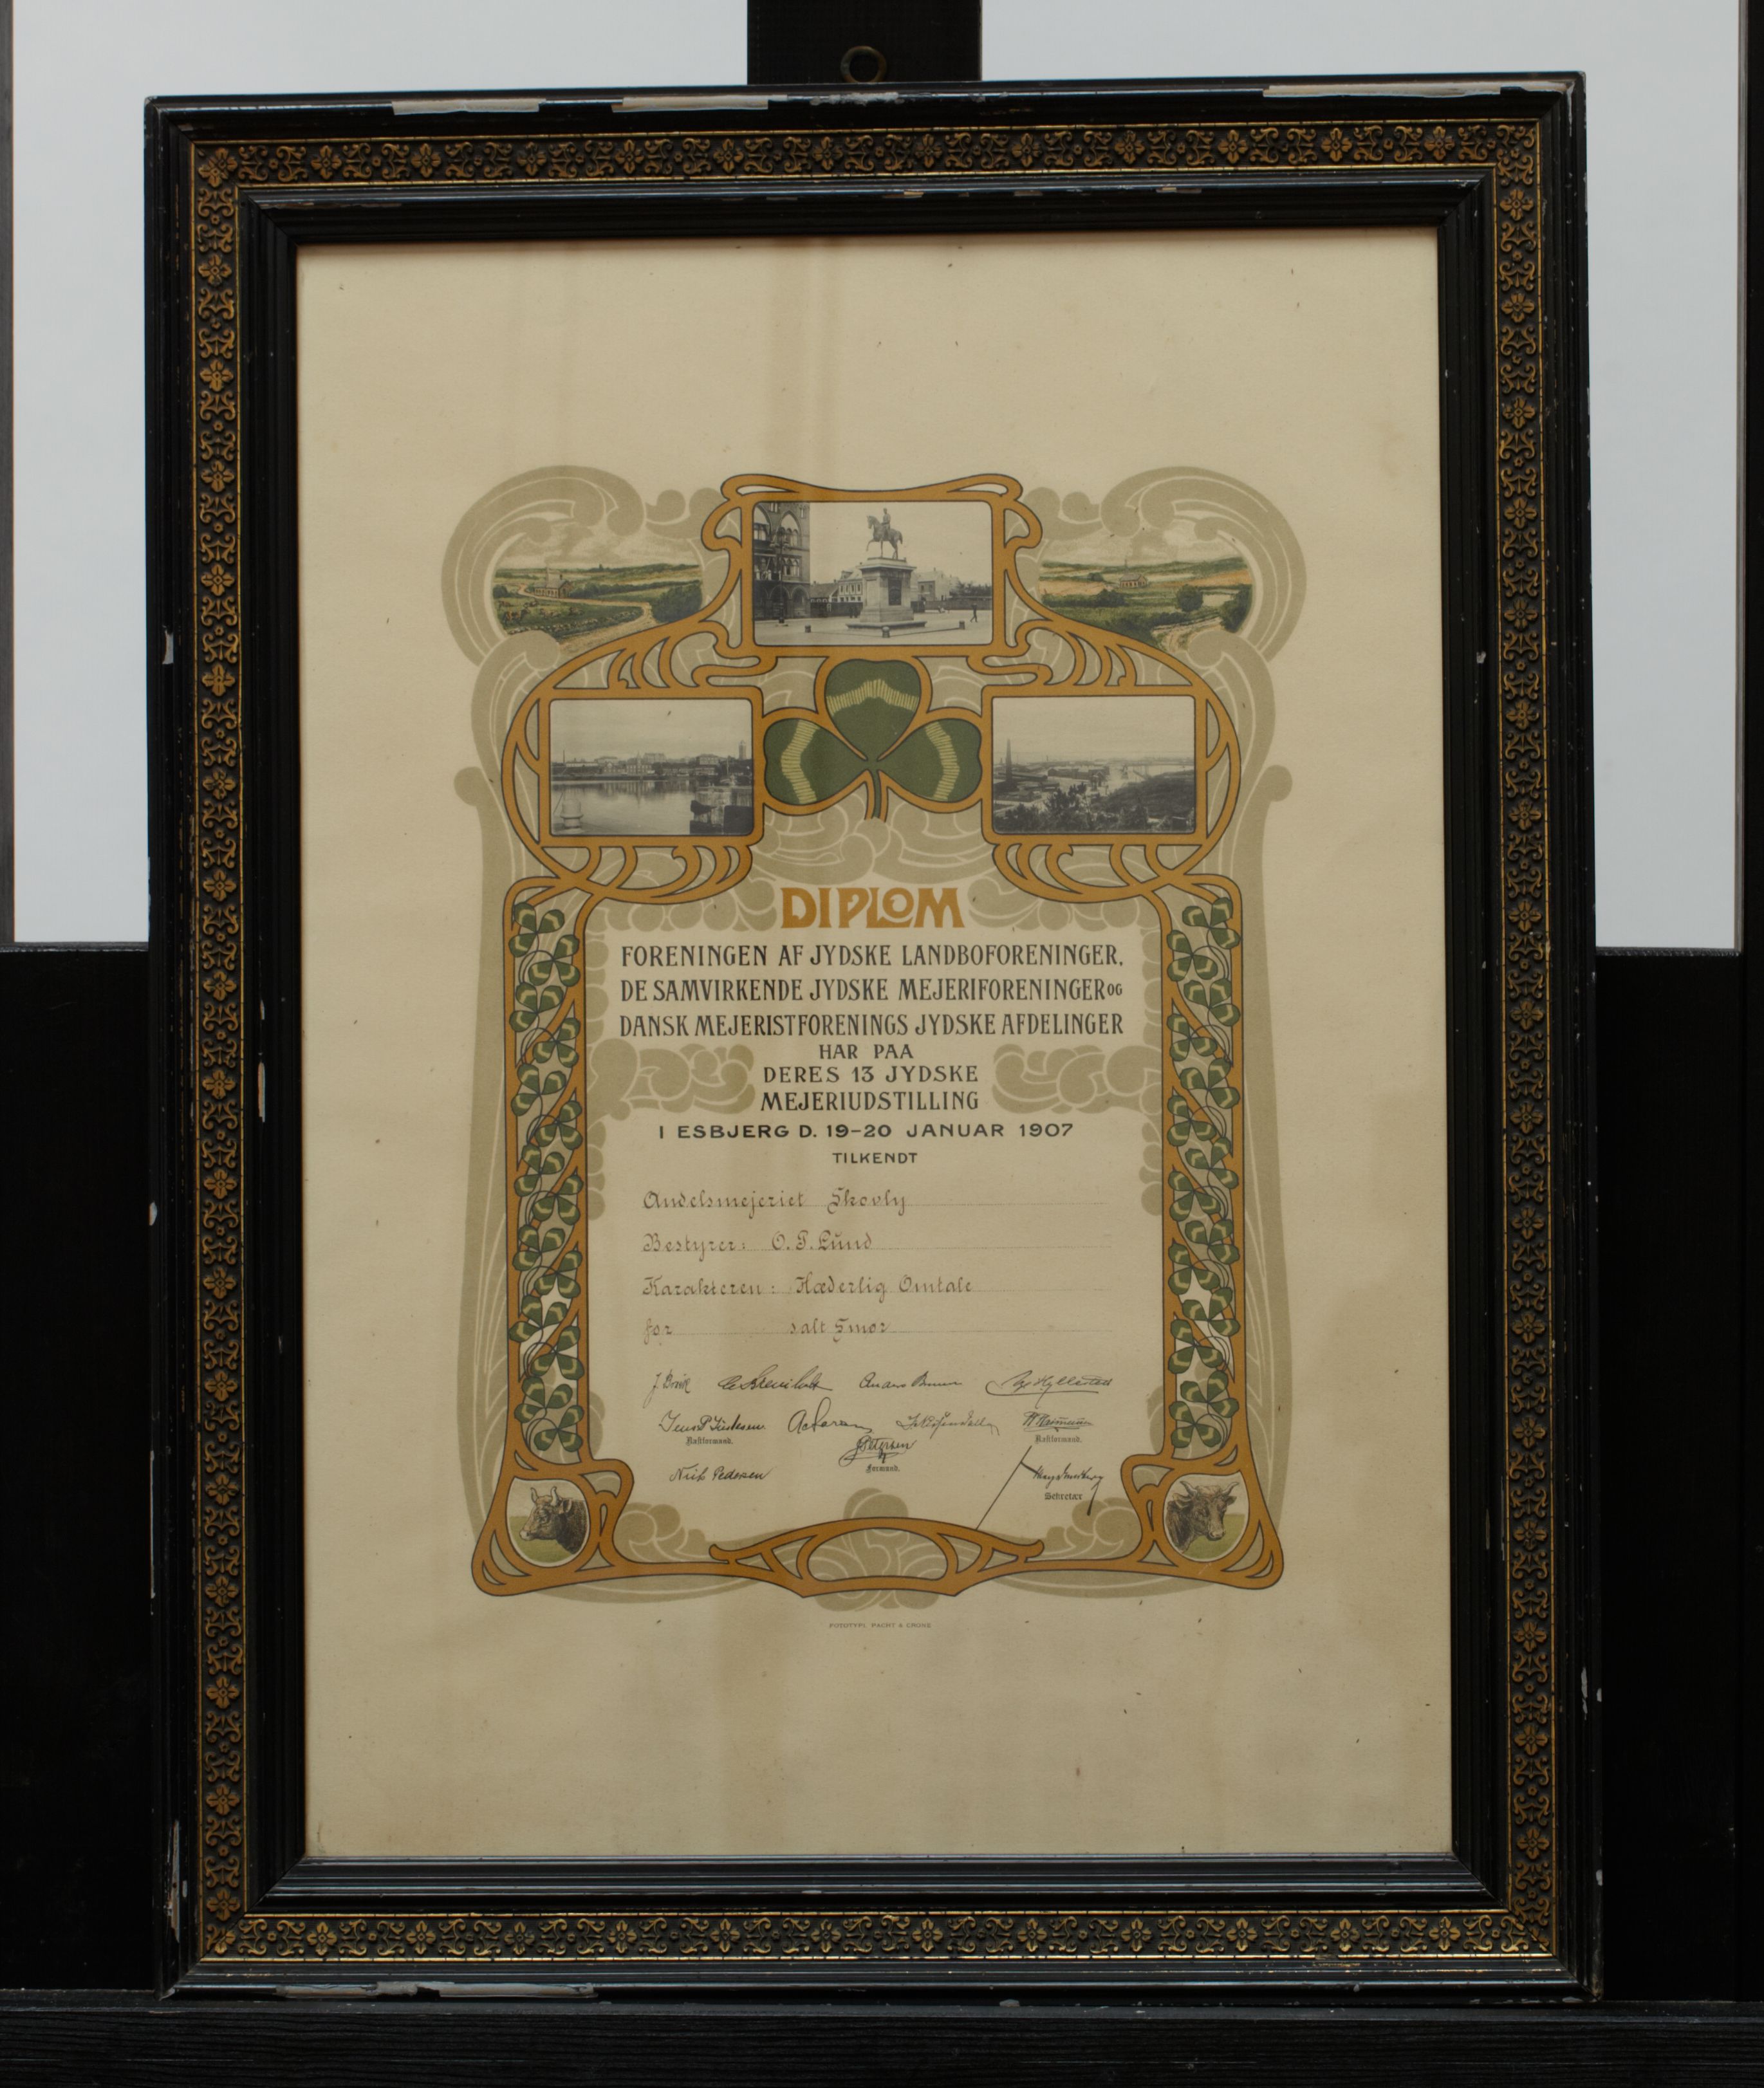 DIPLOM
FORENINGEN AF JYDSKE LANDBOFORENINGER,
DE SAMVIRKENDE JYDSKE MEJERIFORENINGER OG
DANSK MEJERISTFORENINGS JYDSKE AFDELINGER
HAR PAA
DERES 13 JYDSKE
MEJERIUDSTILLING
I ESBJERG D. 19-20 JANUAR 1907
TILKENDT
Andelsmejeriet Skovly
Bestyrer: O. P. Lund
Karakteren: Hæderlig Omtale
for salt Smør
Næstformand.
Næstformand.
Formand.
Niels Pedersen
Sekretær
FOTOTYPI. PACHT & CRONE